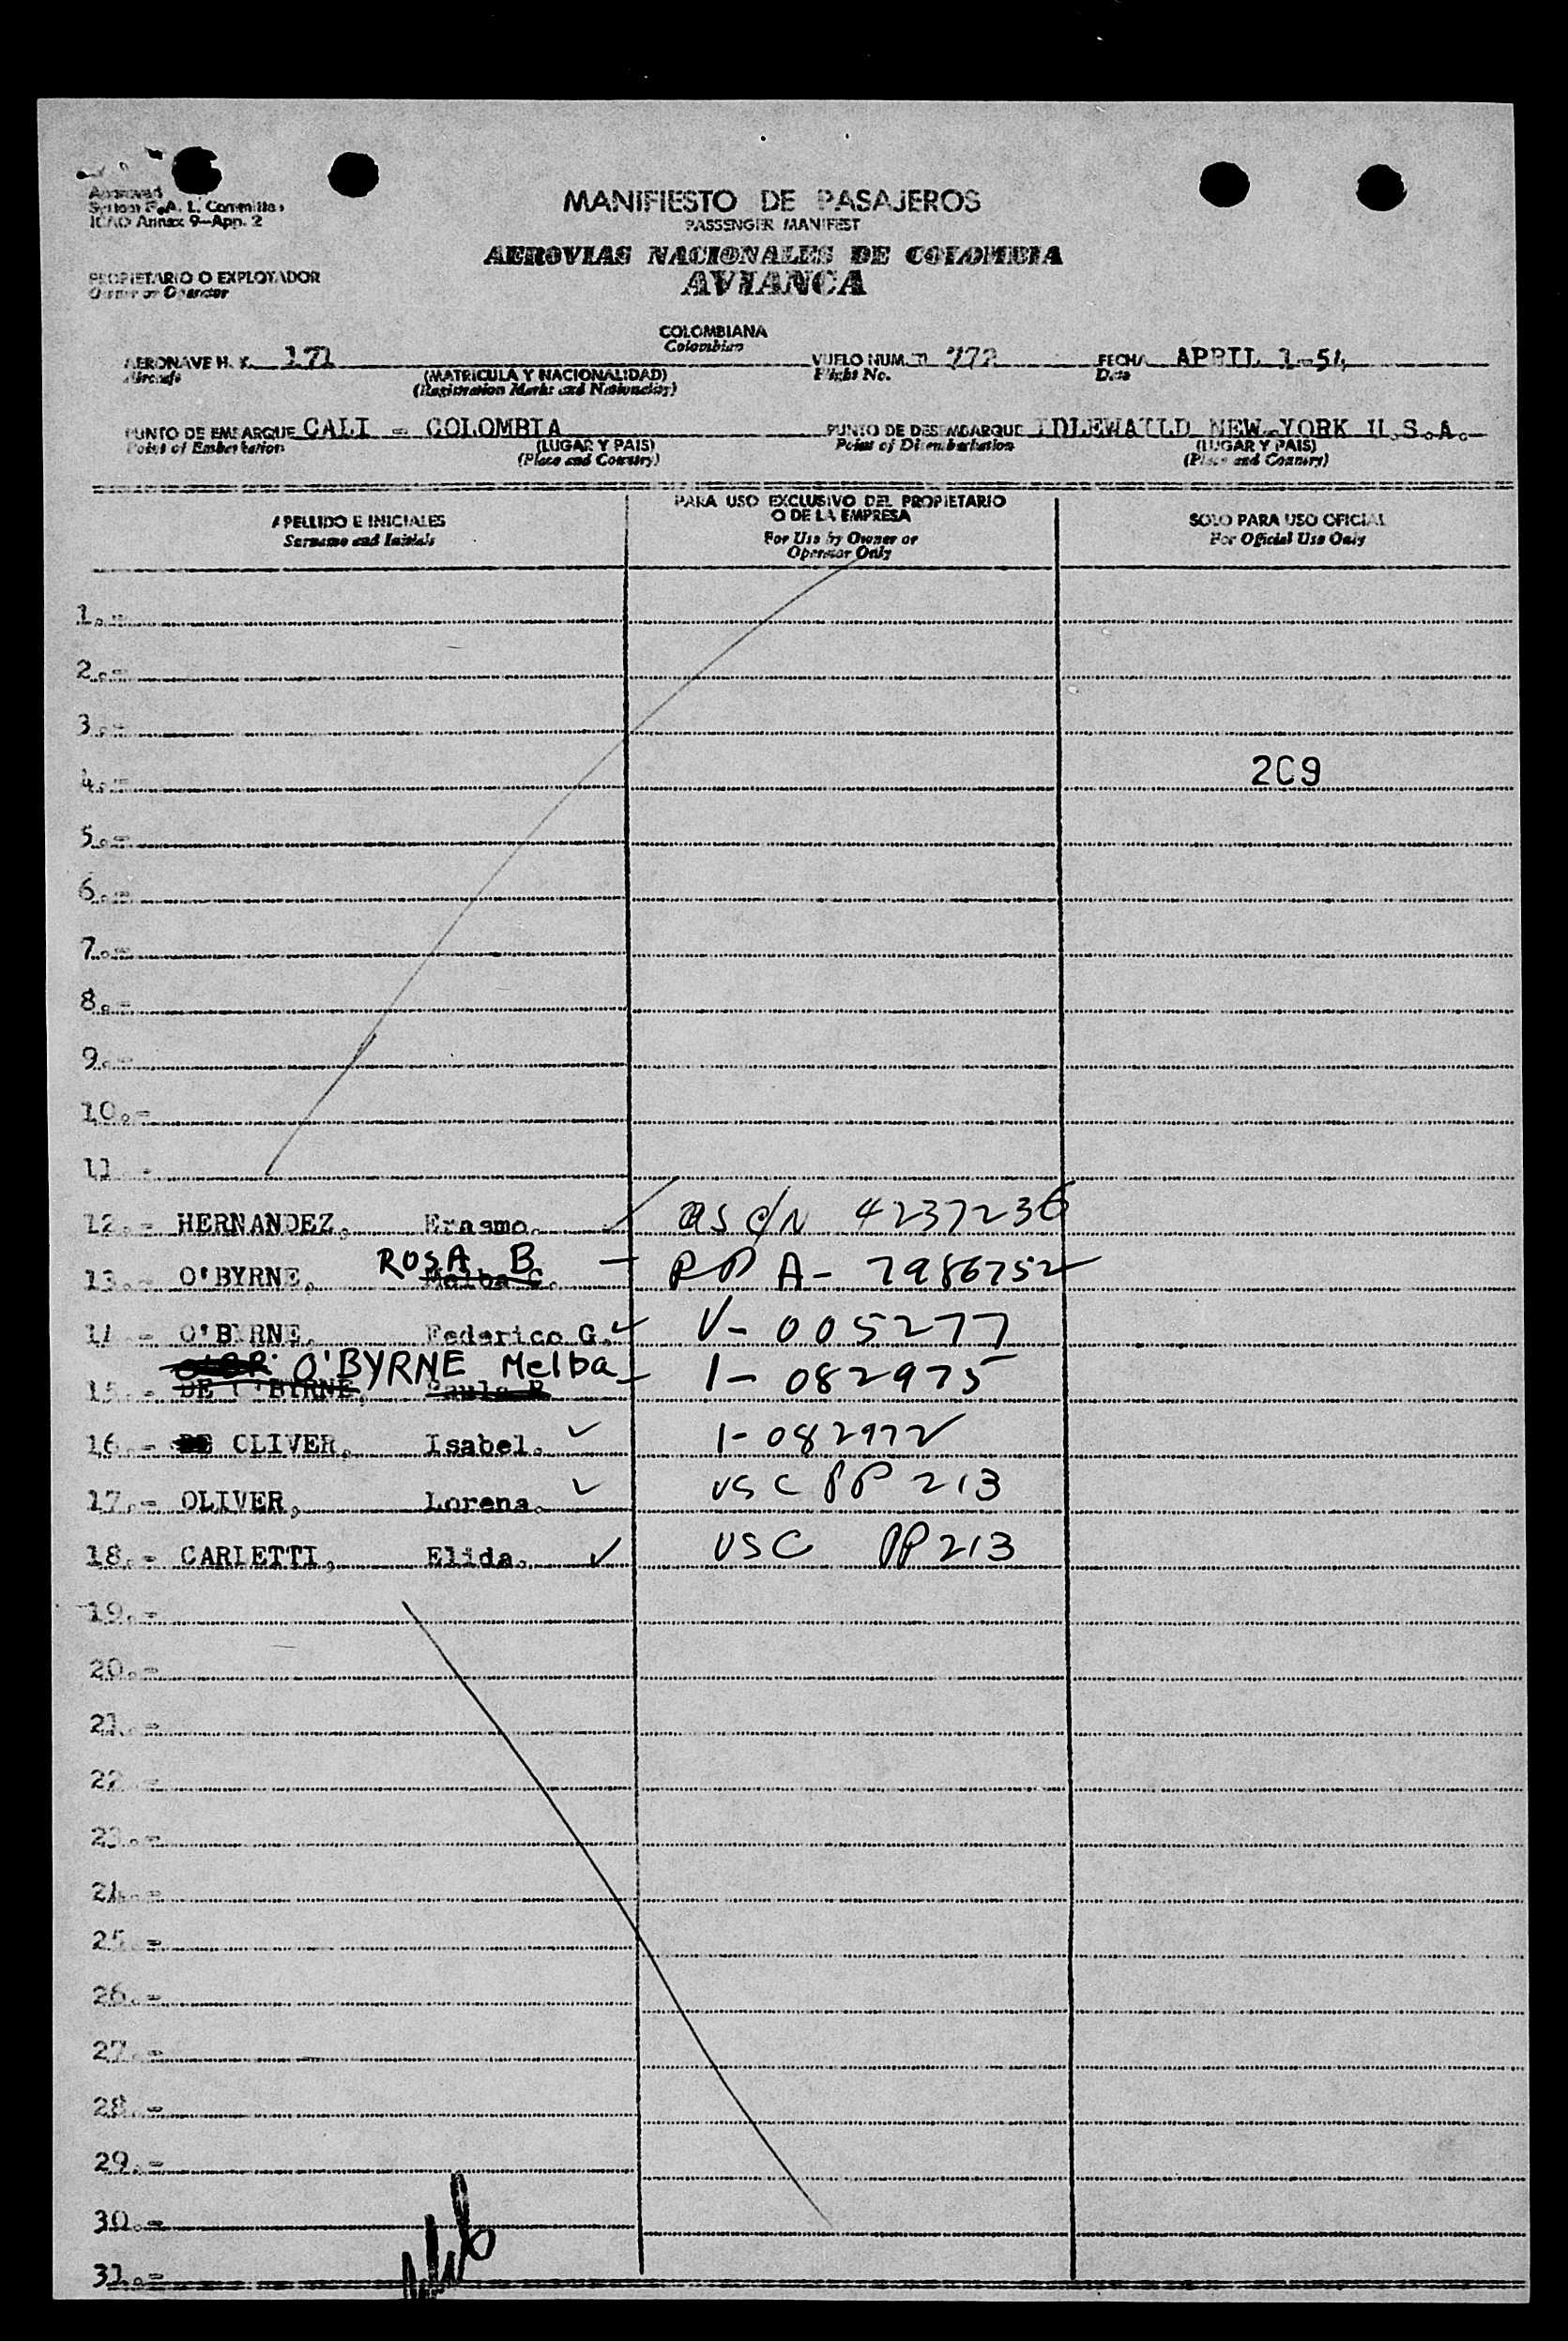 Approved
System F.A. L. Committee
ICAO Annex 9—App. 2
MANIFIESTO DE PASAJEROS
PASSENGER MANIFEST
AEROVIAS NACIONALES DE COLOMBIA
AVIANCA
PROPIETARIO O EXPLOTADOR
Owner or Operator
COLOMBIANA
Colombian
AERONAVE H. K. 171 VUELO NUM. 772 FECHA APRIL 1-54
Aircraft (MATRICULA Y NACIONALIDAD) Flight No. Date
(Registration Marks and Nationality)
PUNTO DE EMBARQUE CALI - COLOMBIA PUNTO DE DESEMBARQUE IDLEWAILD NEW-YORK U.S.A.
Point of Embarkation (LUGAR Y PAIS) Point of Disembarkation (LUGAR Y PAIS)
(Place and Country) (Place and Country)
APELLIDO E INICIALES
Surname and Initials
PARA USO EXCLUSIVO DEL PROPIETARIO
O DE LA EMPRESA
For Use by Owner or
Operator Only
SOLO PARA USO OFICIAL
For Official Use Only
1.-
2.-
3.-
4.- 209
5.-
6.-
7.-
8.-
9.-
10.-
11.-
12.- HERNANDEZ, Erasmo. 4237236
ROSA B
13.- O'BYRNE, Melba C. A- 7986752
14.- O'BYRNE, Federico G. V- 005277
O'BYRNE Melba 1- 082975
15.- DE O'BYRNE, Paula R
16.- DE OLIVER, Isabel. 1-082972
17.- OLIVER, Lorena. USC PP 213
18.- CARLETTI, Elida. USC PP 213
19.-
20.-
21.-
22.-
23.-
24.-
25.-
26.-
27.-
28.-
29.-
30.-
31.-